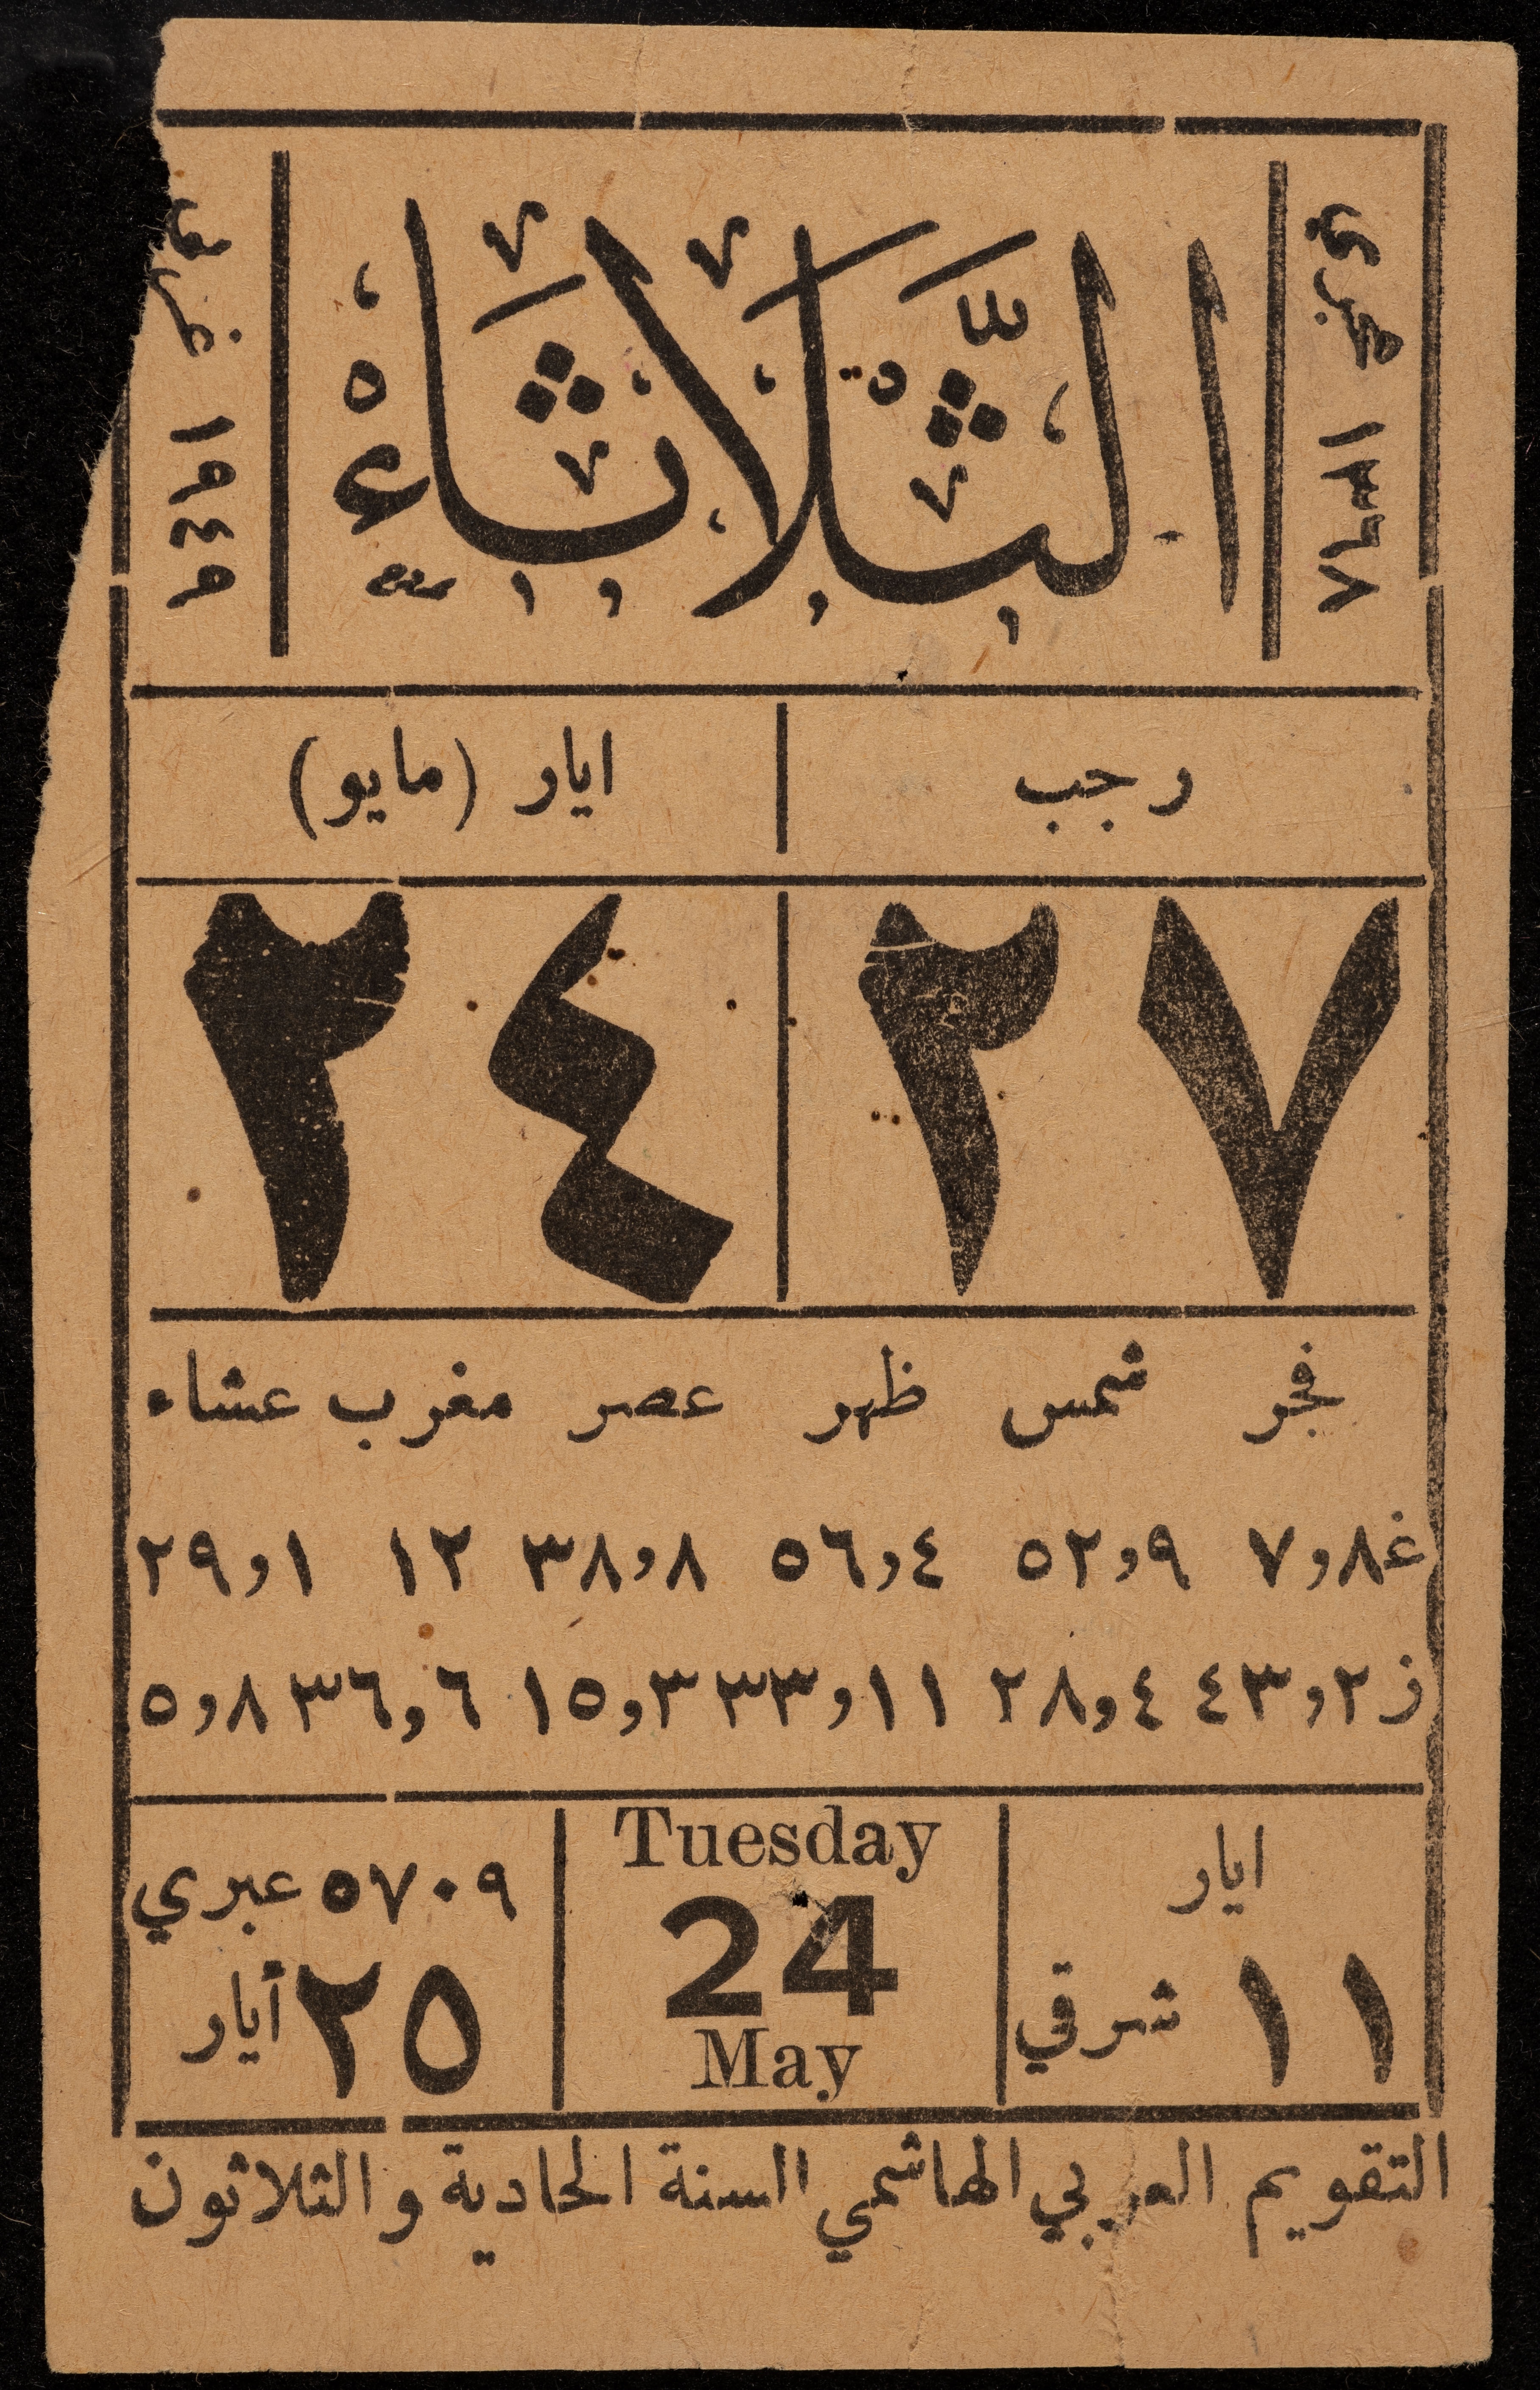 هجري ١٣٦٨
الثَّلَاثَاءُ
غربي ١٩٤٩
رجب
ايار (مايو)
٢٧
٢٤
فجر شمس ظهر عصر مغرب عشاء
غ ٨و٧ ٩و٥٢ ٤و٥٦ ٨و٣٨ ١٢ ١و٢٩
ز ٢و٤٣ ٤و٢٨ ١١و٣٣ ٣و١٥ ٦و٣٦ ٨و٥
ايار
١١ شرقي
Tuesday
24
May
٥٧٠٩ عبري
٢٥ أيار
التقويم العربي الهاشمي السنة الحادية والثلاثون